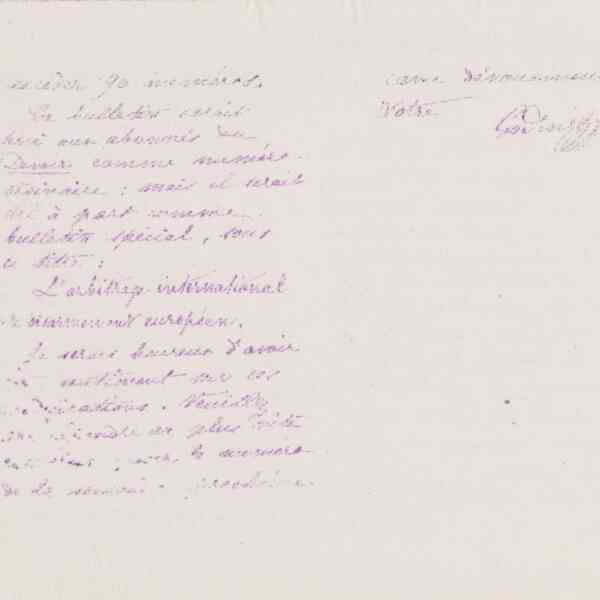 excéder 90 numéros.
Le bulletin serait
servi aux abonnés du
Devoir comme numéro
ordinaire ; mais il serait
à part comme
bulletin spécial, sous
ce titre :
L'arbitrage international
désarmement européen.
Je serais heureux d'avoir
sentiment sur ces
Veuillez
répondre au plus vite
pour le numéro
de la semaine prochaine.
dévouement
Votre
Godin